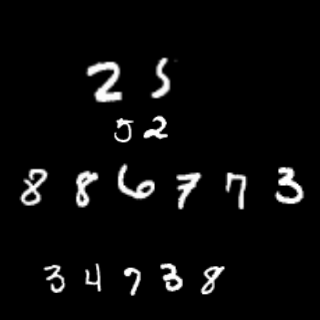 2 5
5 2
8 8 6 7 7 3
3 4 7 3 8